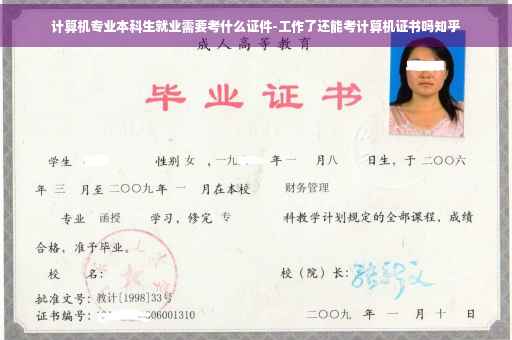 计算机专业本科生就业需要考什么证件-工作了还能考计算机证书吗知乎
成人高等教育
毕业证书
学生 性别 女 ，一九 年 一 月 八 日生，于 二〇〇六
年 三 月至 二〇〇九 年 一 月在本校 财务管理
专业 函授 学习，修完 专 科教学计划规定的全部课程，成绩
合格，准予毕业。
校 名： 校（院）长：
批准文号：教计[1998]33号
证书编号： 06001310 二〇〇九 年 一 月 十 日